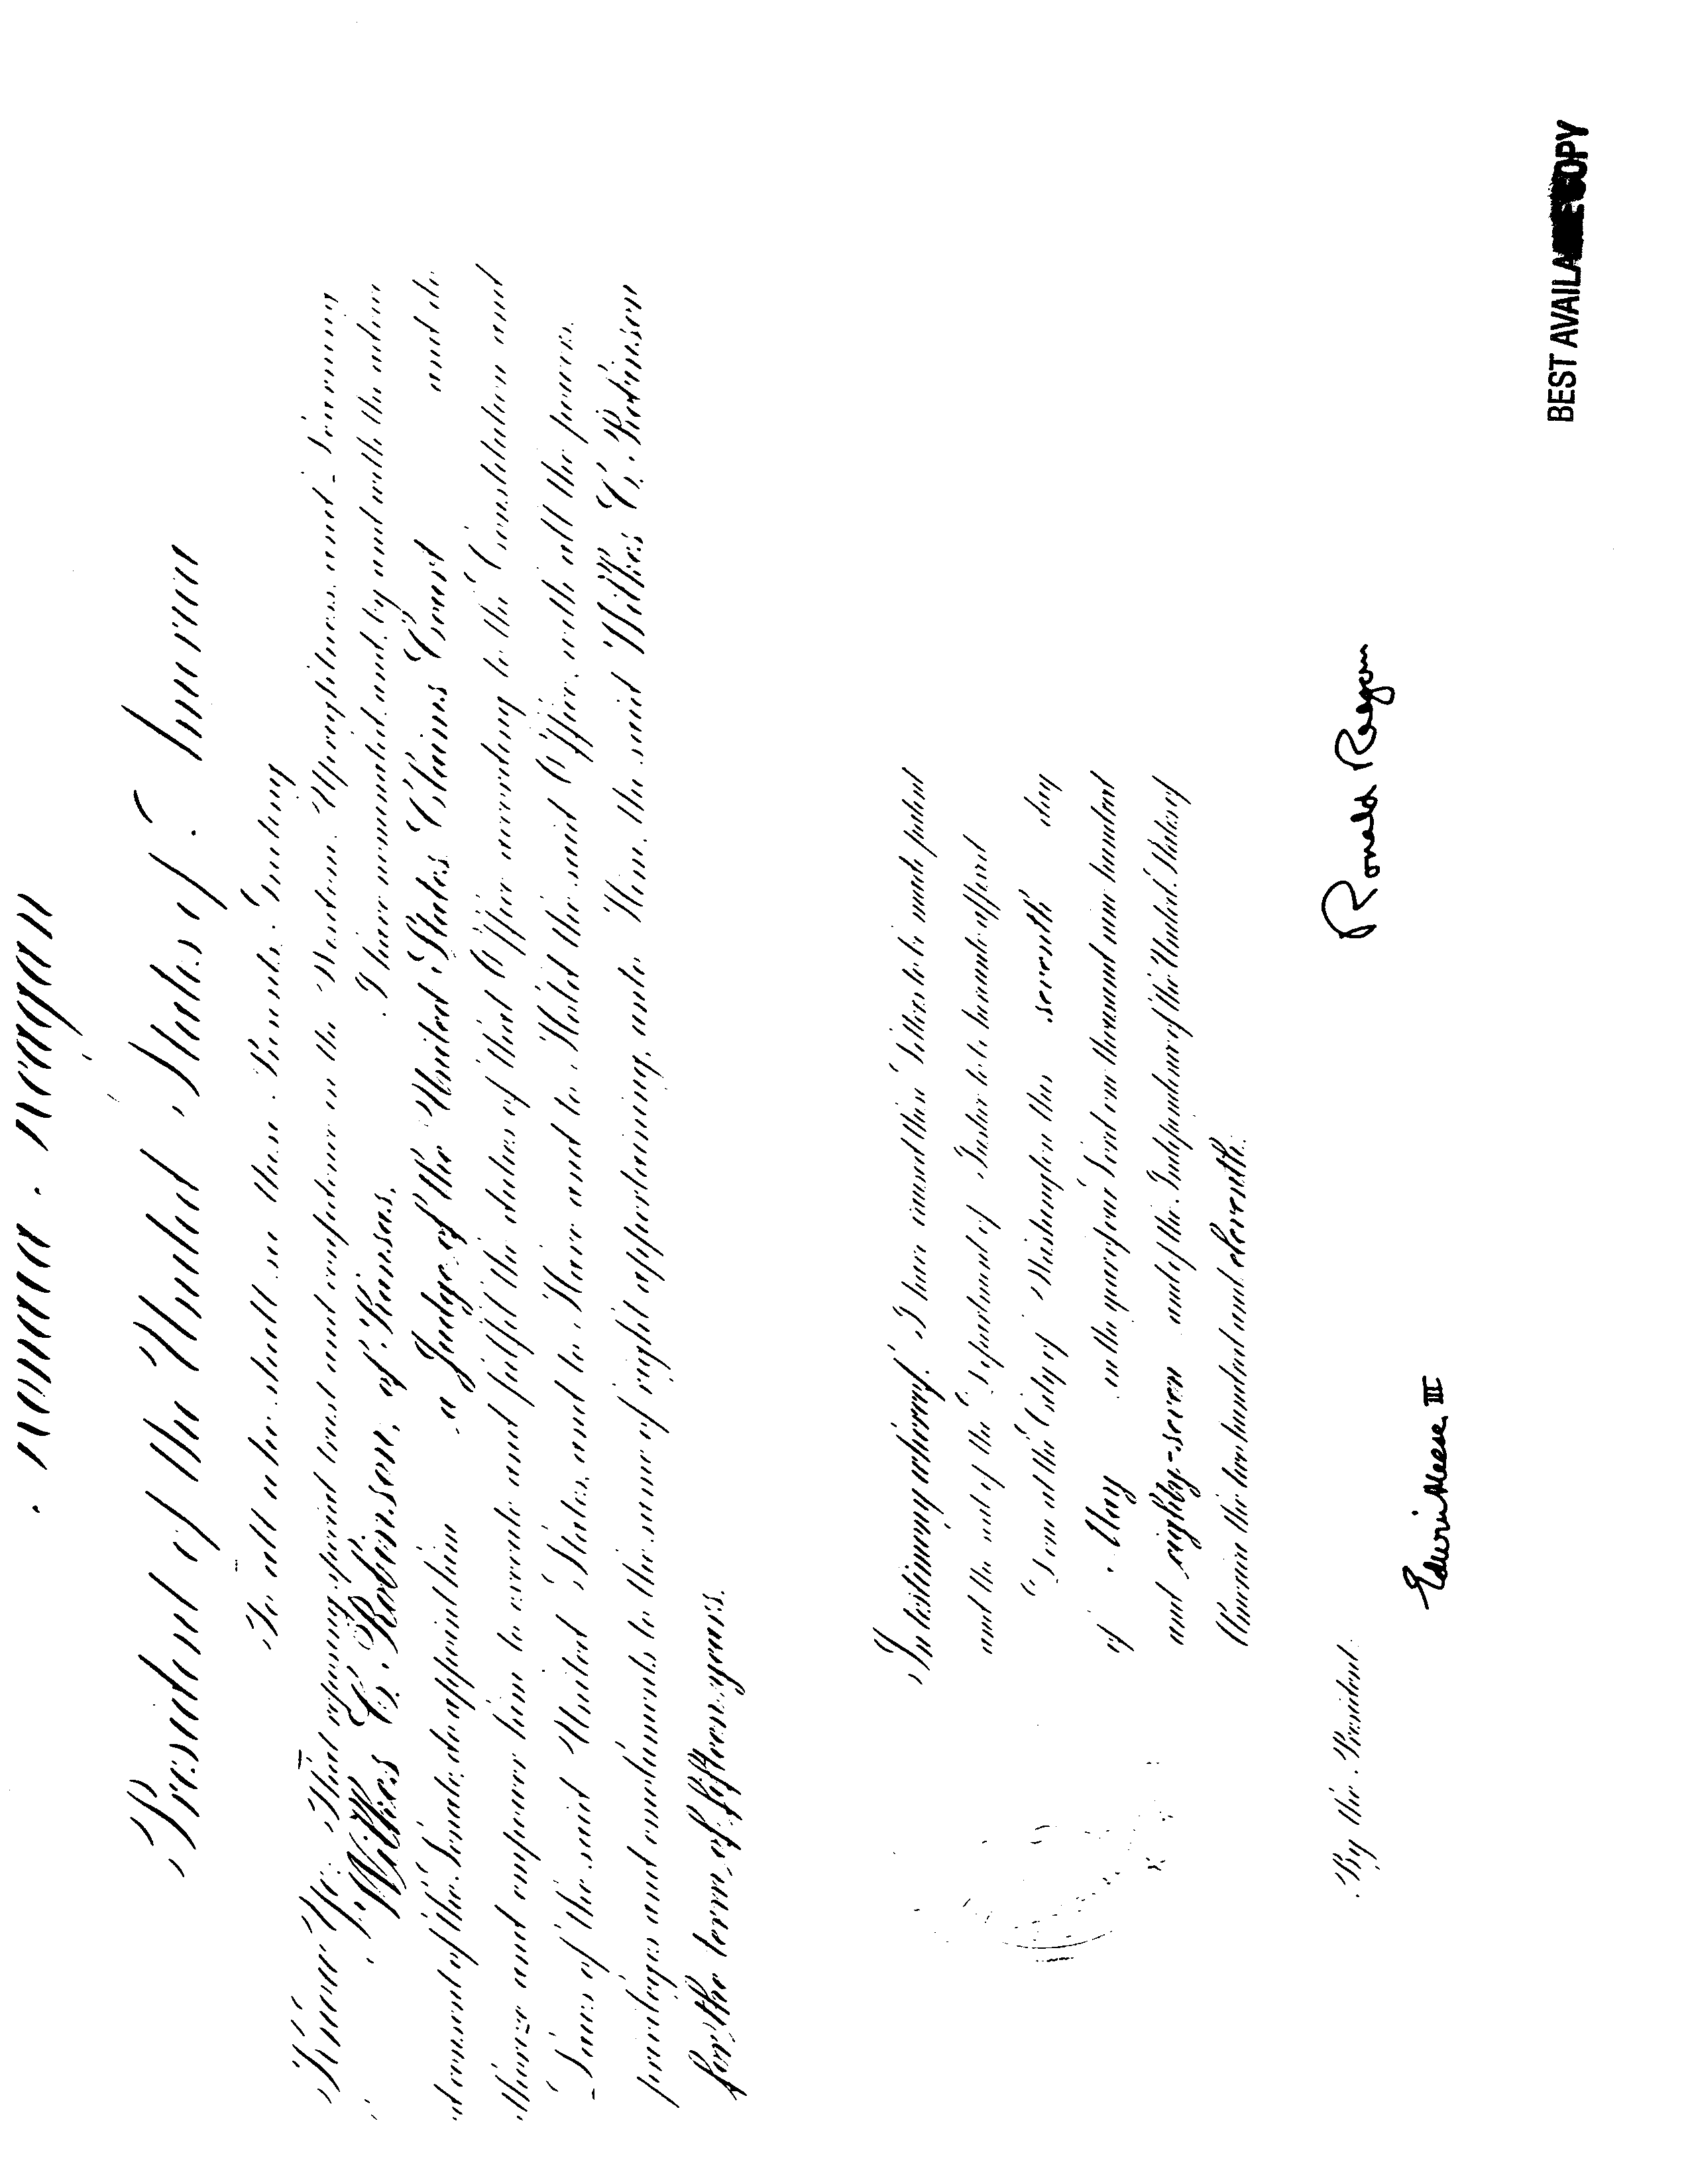 Ronald Reagan
President of the United States of America
To all who shall see these Presents, Greeting:
Know Ye: That reposing special trust and confidence in the Wisdom, Uprightness and Learning
of Wilkes C. Robinson, of Kansas, I have nominated, and, by and with the advice
and consent of the Senate, do appoint him a Judge of the United States Claims Court and do
authorize and empower him to execute and fulfil the duties of that Office according to the Constitution and
Laws of the said United States, and to Have and to Hold the said Office, with all the powers,
privileges and emoluments to the same of right appertaining, unto Him, the said Wilkes C. Robinson
for the term of fifteen years.
In testimony whereof, I have caused these Letters to be made patent
and the seal of the Department of Justice to be hereunto affixed
Done at the City of Washington this seventh day
of May in the year of our Lord one thousand nine hundred
and eighty-seven and of the Independence of the United States of
America the two hundred and eleventh.
Ronald Reagan
By the President:
Edwin Meese III
BEST AVAILABLE COPY